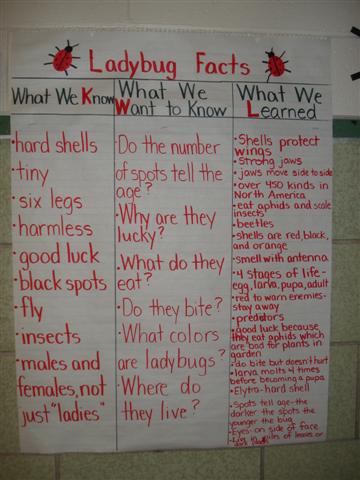 Ladybug Facts
What We Know
•hard shells
•tiny
•six legs
•harmless
•good luck
•black spots
•fly
•insects
•males and
females, not
just "ladies"
What We
Want to Know
•Do the number
of spots tell the
age?
•Why are they
lucky?
•What do they
eat?
•Do they bite?
•What colors
are ladybugs?
•Where do
they live?
What We
Learned
•Shells protect
wings
•Strong jaws
•jaws move side to side
•over 450 kinds in
North America
•eat aphids and scale
insects
•beetles
•shells are red, black,
and orange
•smell with antenna
•4 stages of life-
egg, larva, pupa, adult
•red to warn enemies-
stay away
•predators
•good luck because
they eat aphids which
are bad for plants in
garden
•do bite but doesn't hurt
•larva molts 4 times
before becoming a pupa
•Elytra-hard shell
•Spots tell age-the
darker the spots the
younger the bug
•Eyes-on side of face
•Live in piles of leaves or